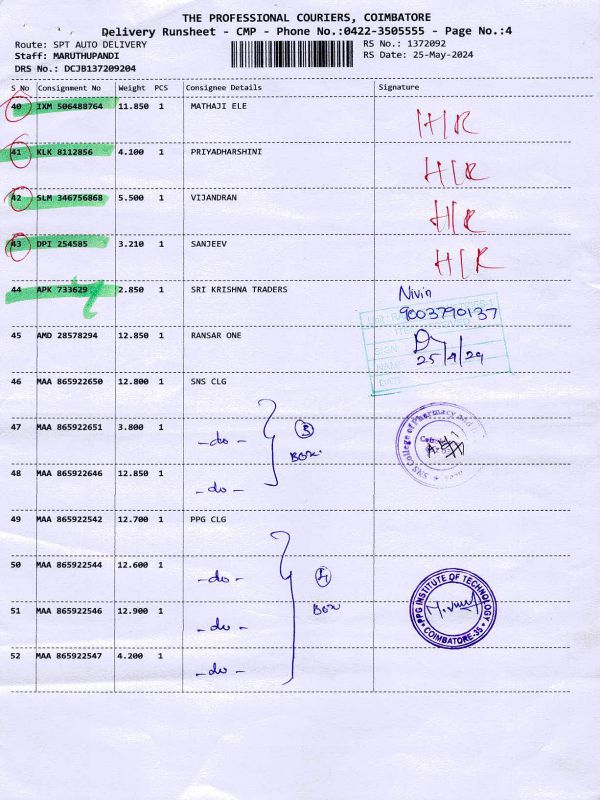 THE PROFESSIONAL COURIERS, COIMBATORE
Delivery Runsheet - CMP - Phone No.:0422-3505555 - Page No.:4
Route: SPT AUTO DELIVERY RS No.: 1372092
Staff: MARUTHUPANDI RS Date: 25-May-2024
DRS No.: DCJB137209204
S No Consignment No Weight PCS Consignee Details Signature
40 IXM 506488764 11.850 1 MATHAJI ELE
H/R
41 KLK 8112856 4.100 1 PRIYADHARSHINI
H/R
42 SLM 346756868 5.500 1 VIJANDRAN
H/R
43 DPI 254585 3.210 1 SANJEEV
H/R
44 APK 733629 2.850 1 SRI KRISHNA TRADERS Nivin
9003790137
45 AMD 28578294 12.850 1 RANSAR ONE
SIGN
25/4/24
NAME
DATE
46 MAA 865922650 12.800 1 SNS CLG
47 MAA 865922651 3.800 1
-do- 3 BOX SNS College of Pharmacy and
48 MAA 865922646 12.850 1
-do-
49 MAA 865922542 12.700 1 PPG CLG
50 MAA 865922544 12.600 1
-do- 4
51 MAA 865922546 12.900 1 BOX PPG INSTITUTE OF TECHNOLOGY
-do- COIMBATORE-35
52 MAA 865922547 4.200 1
-do-